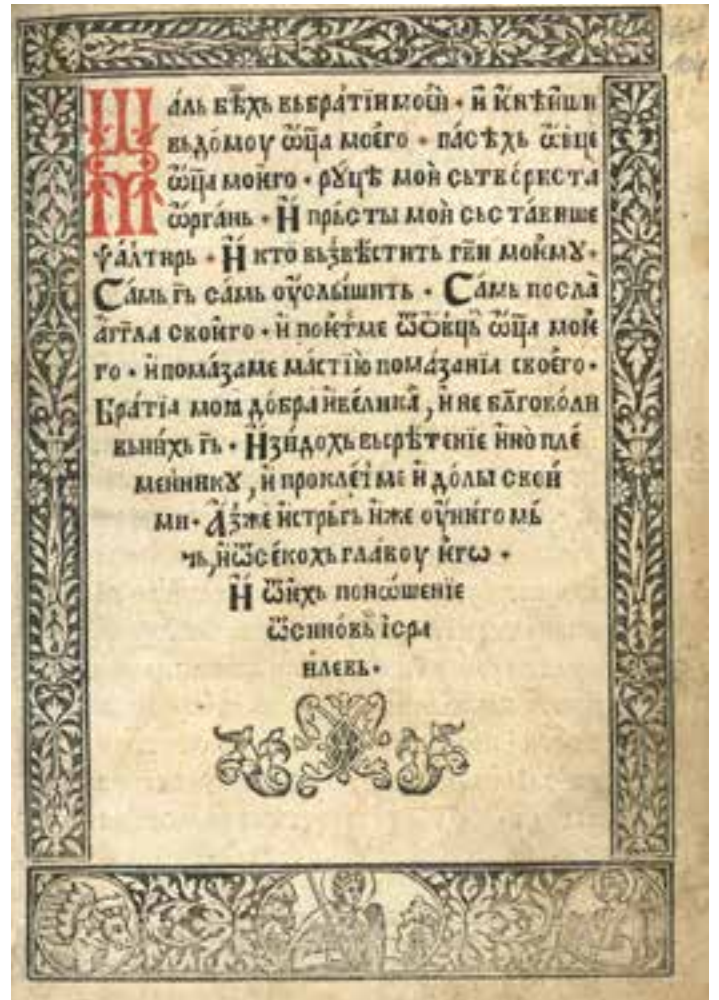 Маль бѣ́хь вьбра́тїи мое́й · и҆ ю҆нѣ́иши
вьдо́моу ѿц҃а мое́го · па́сѣхь ѡ҆́вцє
ѿц҃а моѥ́го · рꙋ́цѣ мои҆ сьтво́риста
ѡ҆рга́нь · И҆ прь́сты мои҆ сьста́више
ѱа́лтирь · И҆ кто вьзвѣ́стить гв҃и моѥмꙋ̀ ·
Са́мь г҃ь са́мь оу҆слы́шить · Са́мь посла̀
а҆́гг҃ла своѥ́го · и҆ поѥ́тме ѿѻвць̀ ѿц҃а моѥ
го · и҆ пома́заме ма́стїю пома́занїа своѥ́го ·
Бра́тїа моꙗ до́бра и҆ве́лика , и҆ не бл҃гово́ли
вьни́хь г҃ь · И҆зи́дохь вьсрѣ́тенїе и҆но пле
ме́нникꙋ , и҆ прокле́т ме и҆ до́лы свои
ми · А҆́зже и҆стрь́гь и҆же оу҆ нѥ́го мь́
чь , и҆ ѿсе́кохь гла́воу ѥ҆гѡ ·
И҆ ѿѥ҆́хь поно́шенїе
ѿсино́вь і҆сра
и҆левь ·